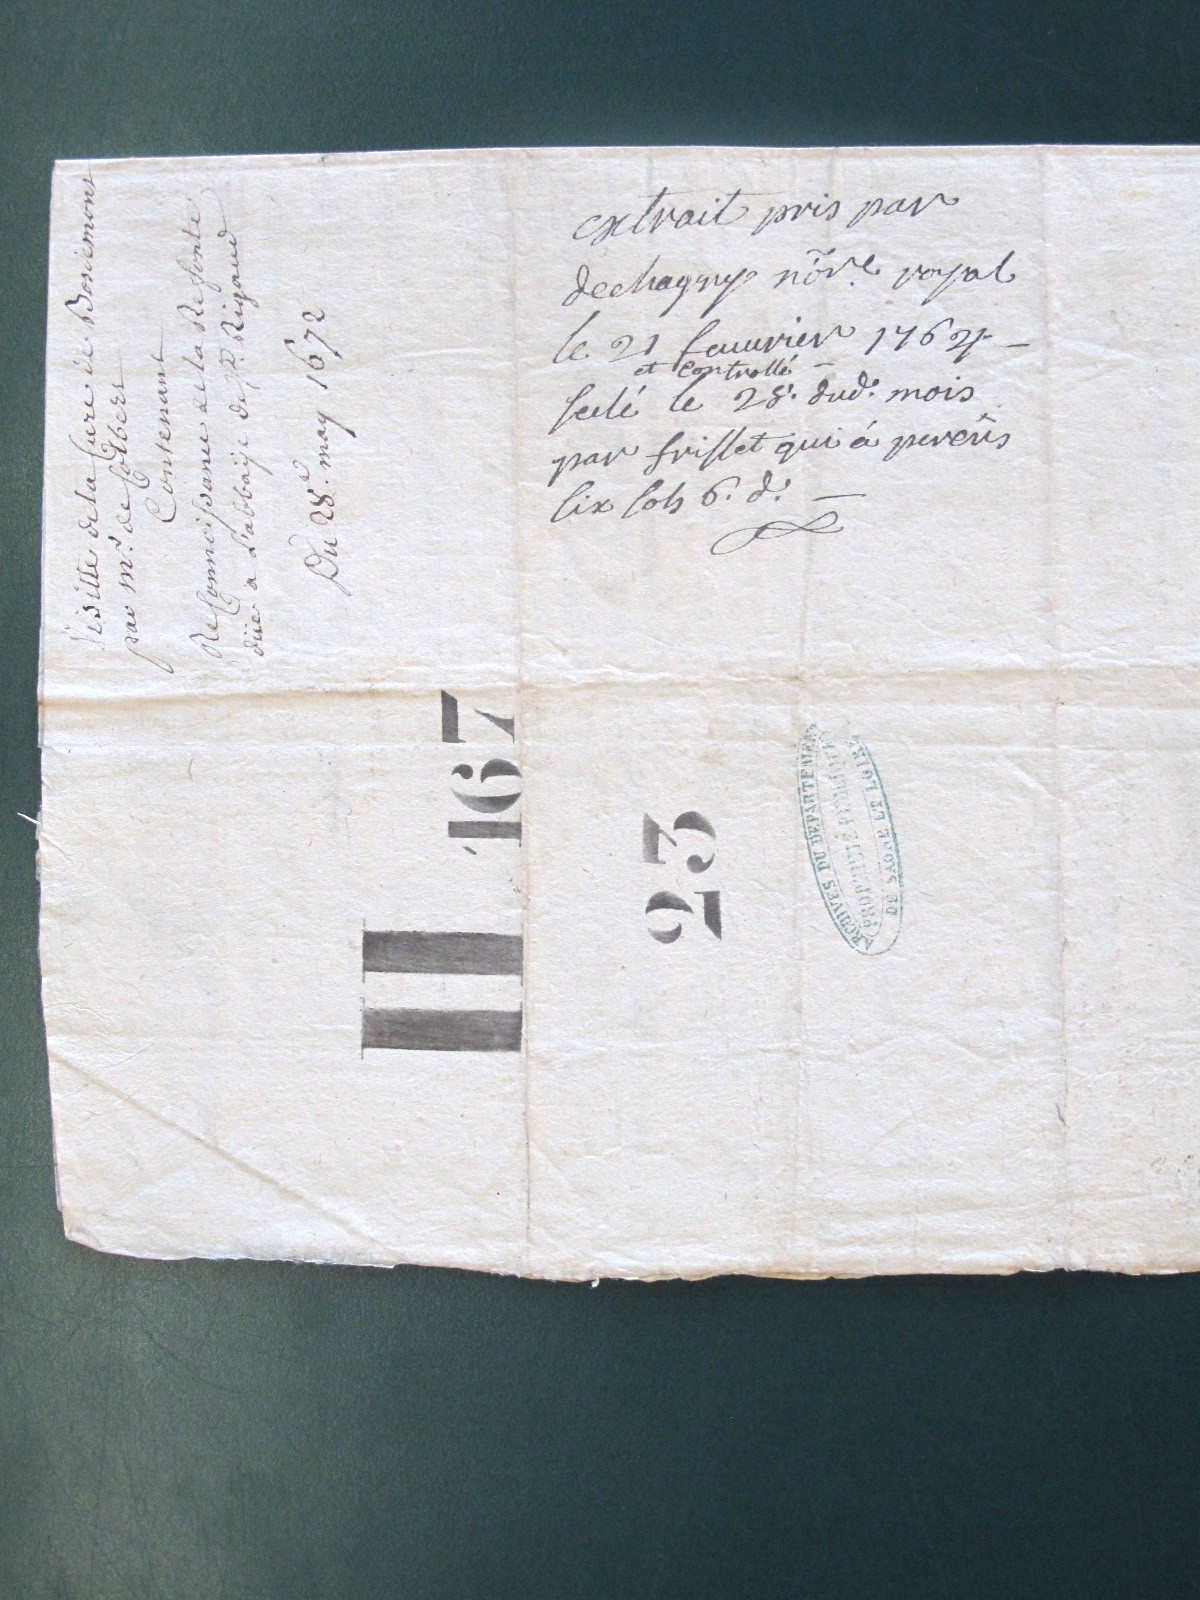 Visitte de la Cure de Bosiemont
par mr. de Colbert
Contenant
Reconnoissance de la Refonte
düe a L'abbaÿe de St. Rigaud
Du 28e. may 1672
extrait pris par
dechagny nōre. royal
le 21 feuvrier 1764 –
et controllé –
selé le 28. dud. mois
par frisset qui á pereûs
six sols 6. d. —
H 167
23
ARCHIVES DU DÉPARTEMENT
PROPRIÉTÉ PUBLIQUE
DE SAONE ET LOIRE